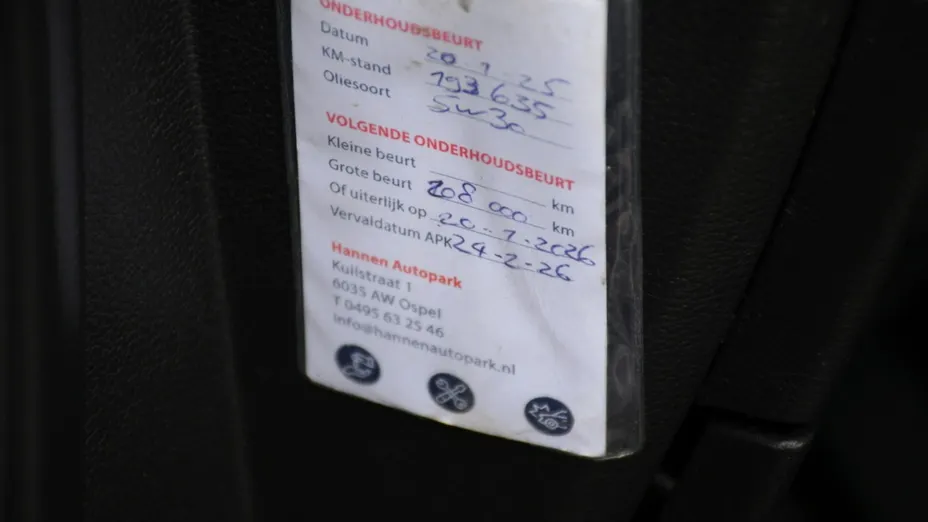 ONDERHOUDSBEURT
Datum 20-1-25
KM-stand 193635
Oliesoort 5w30
VOLGENDE ONDERHOUDSBEURT
Kleine beurt km
Grote beurt 208 000 km
Of uiterlijk op 20-1-2026
Vervaldatum APK 24-2-26
Hannen Autopark
Kuilstraat 1
6035 AW Ospel
T 0495 63 25 46
info@hannenautopark.nl